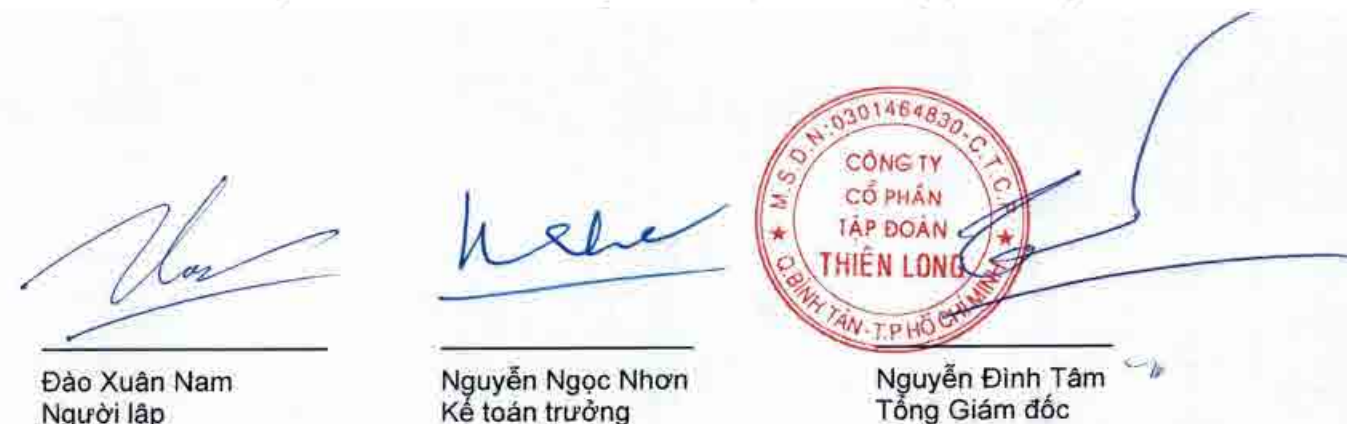 M.S.D.N:0301464830-C.T.C.P
CÔNG TY
CỔ PHẦN
TẬP ĐOÀN
THIÊN LONG
Q.BÌNH TÂN-T.P HỒ CHÍ MINH
Đào Xuân Nam
Người lập
Nguyễn Ngọc Nhơn
Kế toán trưởng
Nguyễn Đình Tâm
Tổng Giám đốc